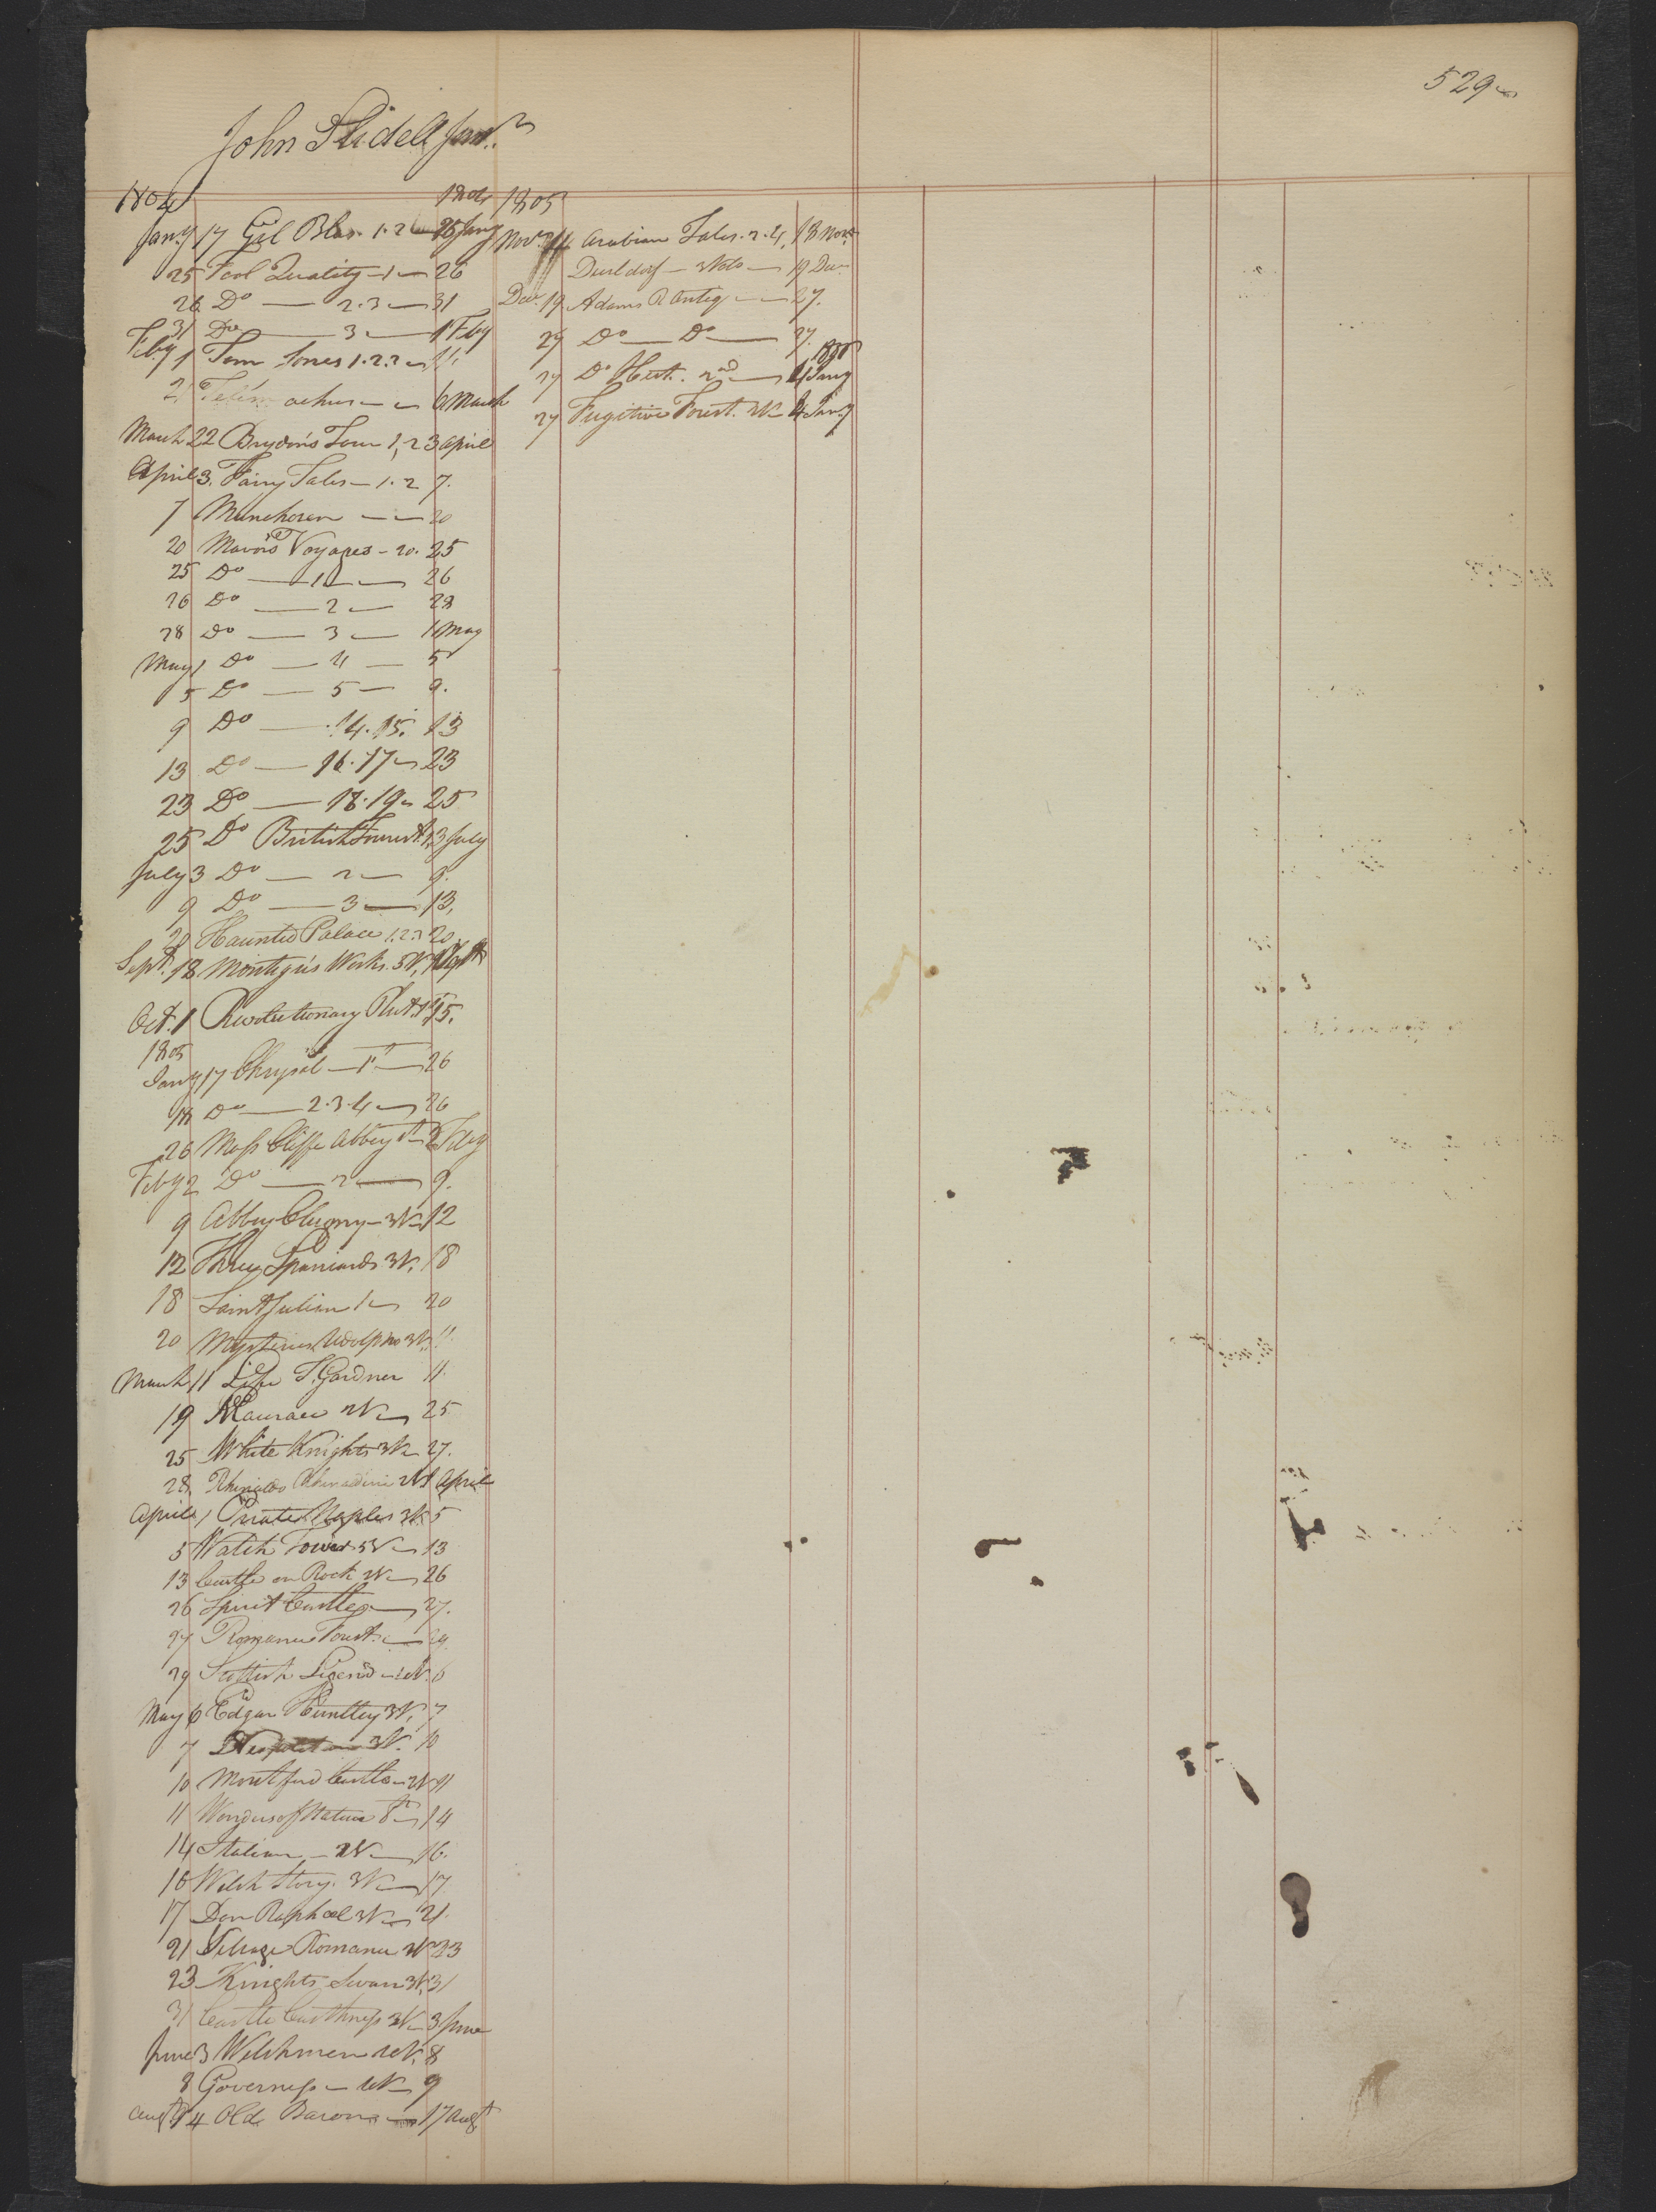 529
John Slidell Junr.
1804 1804
Jany 17 Gil Blas. 1.2 25 Jany
25 Fool Quality — 1 — 26
26 Do — 2.3 — 31
31 Do — 3 — 1 Feby
Feby 1 Tom Jones 1.2.3 11.
21 Telemachus — 6 March
March 22 Brydon's Tour 1,2 3 April
April 3. Fairy Tales — 1.2 7.
7 Munchosen — 20
20 Mavor's Voyages — 20. 25
25 Do — 1 — 26
26 Do — 2 — 28
28 Do — 3 — 1 May
May 1 Do — 4 — 5
5 Do — 5 — 9.
9 Do — 14.15. 13
13 Do — 16.17 23
23 Do — 18.19 25
25 Do British Tourist 1, 3 July
July 3 Do — 2 — 9.
9 Do — 3 — 13,
20 Haunted Palace 1.2.3 20
Sept. 18 Montagu's Works. 5V,
Oct. 1 Revolutionary Plut. 1st 15.
1805
Jany 17 Chrysal — 1st — 26
18 Do — 2.3.4 26
26 Moss Cliffe Abbey 1st 2 Feby
Feby 2 Do — 2 — 9.
9 Abbey Clugny — 3V 12
12 Three Spaniards 3V. 18
18 Saint Julian 1 20
20 Mysteries Udolpho 3V. 11.
March 11 Life T. Gardner 11.
19 2V 25
25 White Knights 3V 27.
28 Rhinaldo Rhinaldini 2V 1 April
April 1 Pirate Naples 3V. 5
5 Watch Tower 5V 13
13 Castle on Rock 2V 26
26 Spirit Castle 27.
27 Romance Forest. 29.
29 Scottish Legend — 4V. 6
May 6 Edgar Huntley 3V, 7
7 3V. 10
10 Montford Castle 2V 11
11 Wonders of Nature 8th 14
14 Italian — 2V — 16.
16 Welsh Story. 3V 17
17 Don Raphael 3V 21.
21 Village Romance 2V 23
23 Knights Swan 3V. 31
31 Castle Caithness 2V 3 June
June 3 Welshmen 4V. 8
8 Governess — 4V 9
Augt 14 Old Baron 17 Augt
1805
Novr. 14 Arabian Tales. 2.4, 18 Novr.
Dusseldorf — 3Vols 19 Decr
Decr. 19 Adams R Antiq — 27.
27 Do — Do — 27.
1806
27 Do Hist. 2nd 4 Jany
27 Fugitive Forest. 2V 4 Jany